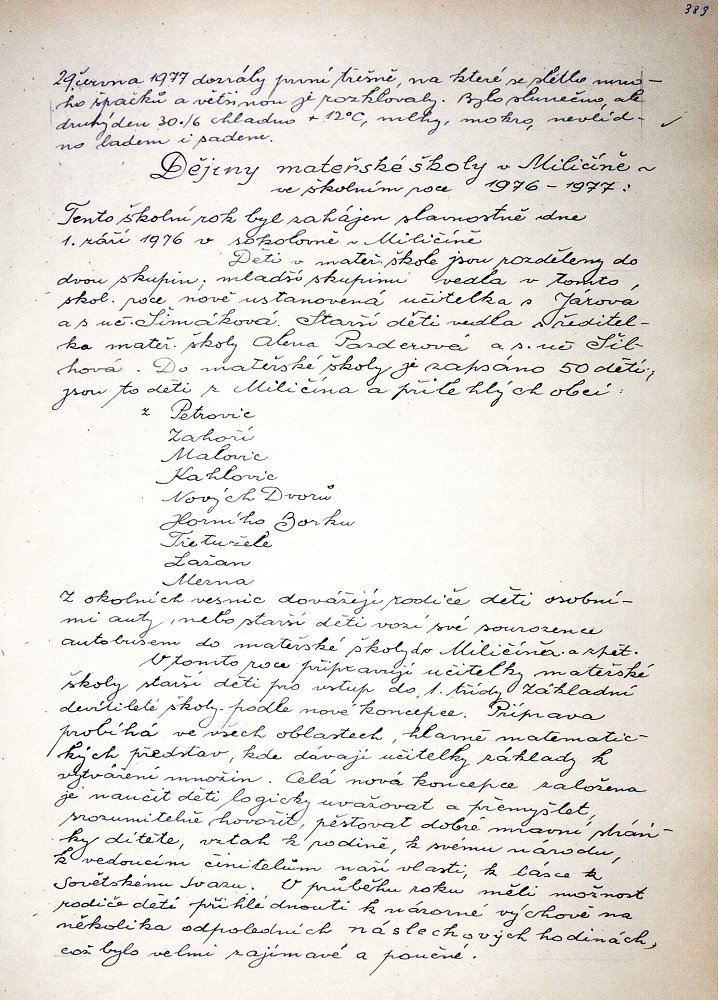 383
29. června 1977 dozrály první třešně, na které se slétlo mno-
ho špačků a většinou je rozklovaly. Bylo slunečno, ale
druhý den 30./6 chladno + 12°C, mlhy, mokro, nevlíd-
no ladem i sadem.
Dějiny mateřské školy v Miličíně ~
ve školním roce 1976 - 1977 :
Tento školní rok byl zahájen slavnostně dne
1. září 1976 v sokolovně v Miličíně
Děti v mateř. škole jsou rozděleny do
dvou skupin; mladší skupinu vedla v tomto
škol. roce nově ustanovená učitelka s Járová
a s uč. Šimáková. Starší děti vedla s. ředitel-
ka mateř. školy Alena Pazderová a s. uč Šíb-
hová. Do mateřské školy je zapsáno 50 dětí;
jsou to děti z Miličína a přilehlých obcí :
z Petrovic
Zahoří
Malovic
Kahlovic
Nových Dvorů
Horního Borku
Třetužele
Lažan
Mezna
Z okolních vesnic dovážejí rodiče děti osobní-
mi auty, nebo starší děti vozí své sourozence
autobusem do mateřské školy do Miličína a zpět.
V tomto roce připravují učitelky mateřské
školy starší děti pro vstup do 1. třídy Základní
devítileté školy podle nové koncepce. Příprava
probíhá ve všech oblastech, hlavně matematic-
kých představ, kde dávají učitelky základy k
vytváření množin. Celá nová koncepce založena
je naučit děti logicky uvažovat a přemýšlet,
srozumitelně hovořit, pěstovat dobré mravní strán-
ky dítěte, vztah k rodině, k svému národu,
k vedoucím činitelům naší vlasti, k lásce k
Sovětskému Svazu. V průběhu roku měli možnost
rodiče dětí přihlédnouti k názorné výchově na
několika odpoledních náslechových hodinách,
což bylo velmi zajímavé a poučné.